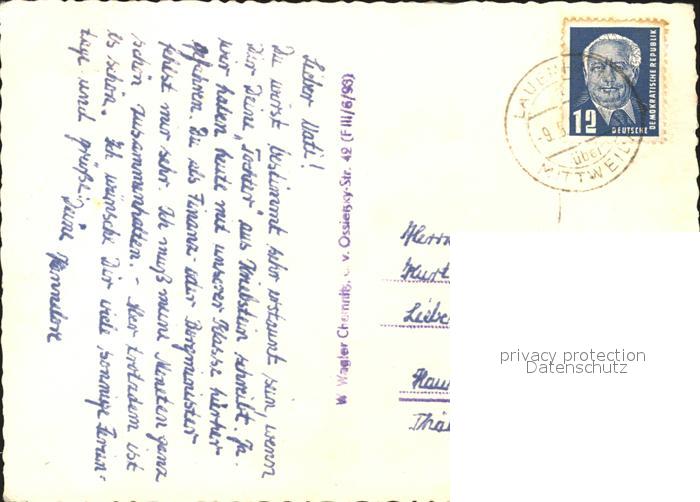 Lieber Vati!
Du wirst bestimmt sehr erstaunt sein, wenn
Dir Deine „Tochter" aus Kriebstein schreibt. Ja.
wir haben heute mit unserer Klasse hierher
gefahren. Du als Finanz- oder Bürgminister
fehlst mir sehr. Ich muß meine Moneten ganz
schön zusammenhalten. - Aber trotzdem ist
es schön. Ich wünsche Dir viele sonnige Ferien-
tage und grüße! Deine Hannelore
W. Wagler Chemnitz, v. Ossietzky-Str. 42 (F III/6/93)
12
DEUTSCHE
DEMOKRATISCHE REPUBLIK
über
MITTWEIDA
Herrn
Kurt
privacy protection
Datenschutz